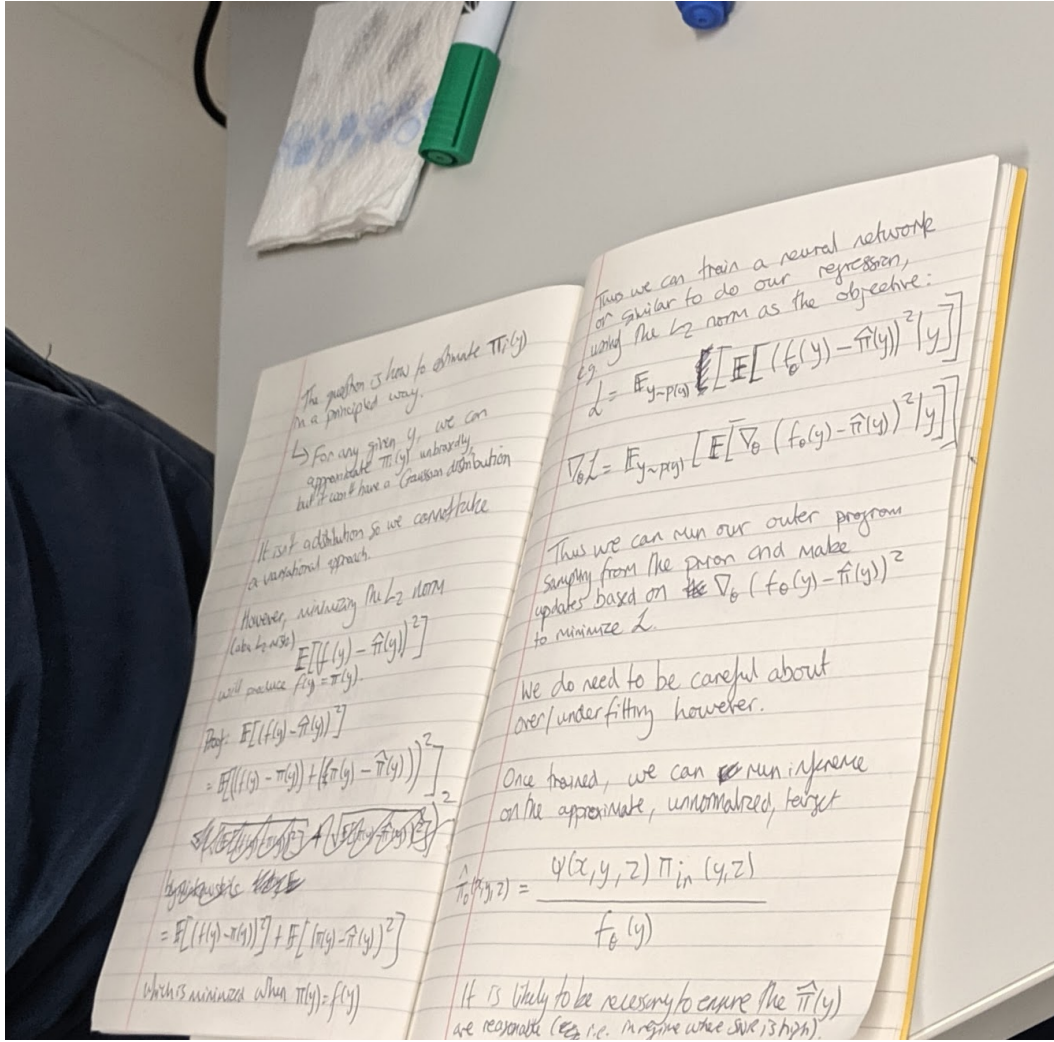 The question is how to estimate πᵢ(y)
in a principled way.
↳ For any given y, we can
approximate πᵢ(y) unbiasedly,
but it won't have a Gaussian distribution
It isn't a distribution so we cannot take
a variational approach.
However, minimizing the L₂ norm
E[(f(y) − π̂(y))²]
will produce f(y) = π(y).
Proof: E[(f(y) − π̂(y))²]
= E[((f(y) − π(y)) + (π(y) − π̂(y)))²]
= E[(f(y) − π(y))²] + E[(π(y) − π̂(y))²]
which is minimized when π(y) = f(y)
Thus we can train a neural network
or similar to do our regression,
using the L₂ norm as the objective:
e.g.
L = E_{y~p(y)} [E[(f_θ(y) − π̂(y))² | y]]
∇_θ L = E_{y~p(y)} [E[∇_θ (f_θ(y) − π̂(y))² | y]]
Thus we can run our outer program
sampling from the prior and make
updates based on ∇_θ (f_θ(y) − π̂(y))²
to minimize L.
We do need to be careful about
over/underfitting however.
Once trained, we can run inference
on the approximate, unnormalized, target
π̂₀(x,y,z) = ψ(x,y,z) πᵢₙ(y,z)
f_θ(y)
It is likely to be necessary to ensure the π̂(y)
are reasonable (i.e. in regime where SNR is high).